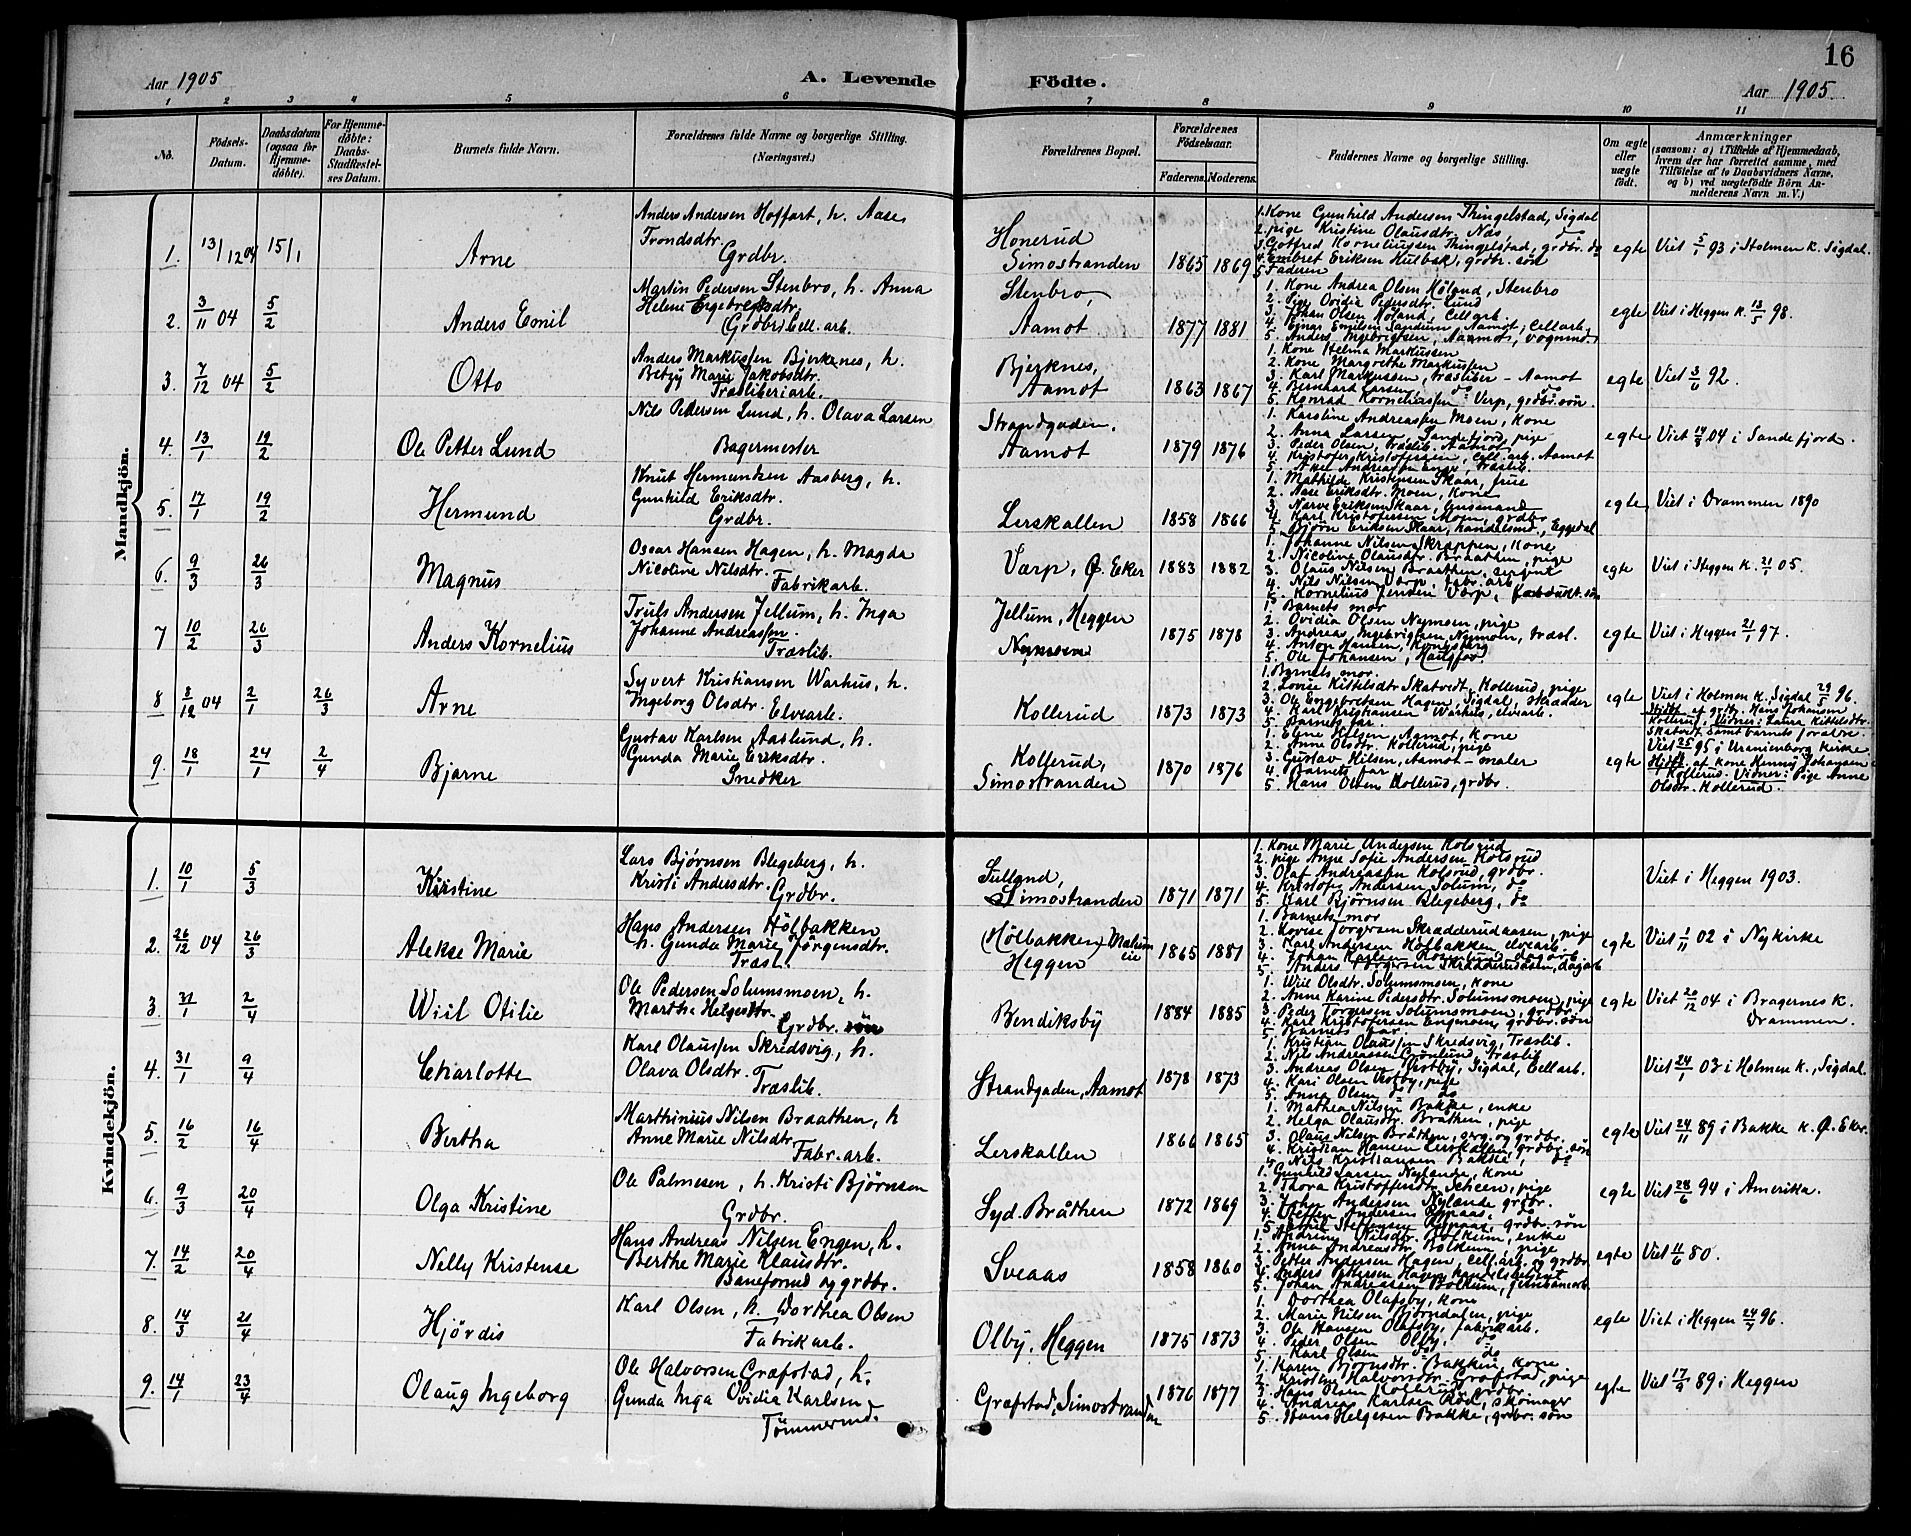 16
Aar 1905
A. Levende
Födte.
Aar 1905.
1 2 3 4 5 6
7 8 9 10 11
No.
Födsels-
Datum.
Daabsdatum
(ogsaa for
Hjemme-
døbte).
For Hjemme-
döbte:
Daabs-
Stadfæstel-
ses Datum.
Barnets fulde Navn.
Forældrenes fulde Navne og borgerlige Stilling.
(Næringsvei.)
Forældrenes Bopæl.
Forældrenes
Födselsaar.
Faderens.
Moderens.
Faddernes Navne og borgerlige Stilling.
Om ægte
eller
uægte
födt.
Anmærkninger
(saasom: a) i Tilfælde af Hjemmedaab,
hvem der har forrettet samme, med
Tilföielse af to Daabsvidners Navne,
og b) ved uægtefödte Börn An-
melderens Navn m. V.)
Mandkjön.
1. 13/12 04 15/1
Arne
Anders Andersen Hoffart, h. Aase
Trondsdtr.
Grdbr.
Honerud
Simostranden
1865 1869
1. Kone Gunhild Andersen Thingelstad, Sigdal
2. pige Kristine Olausdtr. Næs, do
3. Gotfred Korneliussen Thingelstad, grdbr. do
4. Embret Eriksen Hulbak, grdbr. søn
5. Faderen
egte
Viet 5/1 93 i Holmen K. Sigdal.
2. 3/11 04 5/2
Anders Emil
Martin Pedersen Stenbro, h. Anna
Helene Engebretsdtr.
(Grdbr) Cell. arb.
Stenbro,
Aamot
1877 1881
1. Kone Andrea Olsen Høland, Stenbro
2. Pige Ovidia Pedersdtr. Lund
3. Johan Olsen Høland, Cellarb.
4. Ragnar Emilsen Sandum, Aamot, Cellarb.
5. Anders Ingebrigtsen, Aamot, vognmd
egte
Viet i Heggen K. 13/5 98.
3. 7/12 04 5/2
Otto
Anders Markussen Bjerkenes, h.
Betzy Marie Jakobsdtr.
Træsliberiarb.
Bjerknes,
Aamot
1863 1867
1. Kone Helma Markussen
2. Kone Margrethe Markussen
3. Karl Markussen, træsliber - Aamot
4. Bernhard Larsen, do do
5. Konrad Korneliussen Verp, grdbr. søn.
egte
Viet 3/6 92.
4. 13/1 19/2
Ole Petter Lund
Nils Pedersen Lund, h. Olava Larsen
Bagermester
Strandgaden,
Aamot
1879 1876
1. Karoline Andreassen Moen, kone
2. Anna Larsen, Sandefjord, pige
3. Peder Olsen, Træslib. Aamot
4. Kristofer Kristoffersen, Cell. arb. Aamot
5. Axel Andreassen Enge, Træslib.
egte
Viet 14/9 04 i Sandefjord.
5. 17/1 19/2
Hermund
Knut Hermundsen Aasberg, h.
Gunhild Eriksdtr.
Grdbr.
Lerskallen
1858 1866
1. Mathilde Kristensen Skaar, frue
2. Aase Eriksdtr. Moen, kone
3. Narve Eriksen Skaar, lensmand
4. Karl Kristofersen Moen, grdbr.
5. Bjørn Eriksen Skaar, handelsmd, Eggedal
egte
Viet i Drammen 1890
6. 9/3 26/3
Magnus
Oscar Hansen Hagen, h. Magda
Nicoline Nilsdtr.
Fabrikarb.
Værp, Ø. Eker
1883 1882
1. Johanne Nilsen Skrappen, kone
2. Nicoline Olausdtr. Braaten, pige
3. Olaus Nilsen Braathen, sergent
4. Nils Nilsen Værp, fabr. arb
egte
Viet i Heggen K. 21/1 05.
7 10/2 26/3
Anders Kornelius
Truls Andersen Jellum, h. Inga
Johanne Andreassen.
Træslib.
Jellum, Heggen
Nymoen
1875 1878
1. Barnets mor
2. Ovidia Olsen Nymoen, pige
3. Andreas Ingebrigtsen Nymoen, træsl.
4. Anton Hansen, Kongsberg
5. Ole Johansen, Haugfos.
egte
Viet i Heggen 21/1 97.
8 8/12 04 2/1 26/3
Arne
Syvert Kristiansen Warhus, h.
Ingeborg Olsdtr. Elvearb.
Kollerud
1873 1873
1. Barnets mor.
2. Lovise Kittelsdtr Skatvedt, Kollerud, pige
3. Ole Engebretsen Hagen, Sigdal, skrædder
4. Karl Kristiansen Warhus, elvearb.
5. Barnets far
egte
Viet i Holmen K. Sigdal 29/5 96.
Hjdbt. af grdbr. Hans Johansen
Kollerud, Vidner: Laura Kittelsdtr.
Skatvedt samt barnets forældre.
9. 18/1 24/1 2/4
Bjarne
Gustav Karlsen Aaslund, h.
Gunda Marie Eriksdtr.
Snedker
Kollerud,
Simostranden
1870 1876
1. Eline Hilsen, Aamot, kone
2. Anne Olsdtr. Kollerud, pige
3. Gustav Hilsen, Aamot - maler
4. Barnets far
5. Hans Olsen Kollerud, grdbr.
egte
Viet 25/ 95 i Uranienborg Kirke
Hjdbt. af kone Henny Johansen
Kollerud. Vidner: Pige Anne
Olsdtr. Kollerud.
Kvindekjön.
1. 10/1 5/3
Kristine
Lars Bjørnsen Blegeberg, h.
Kristi Andersdtr. Grdbr.
Sulland,
Simostranden
1871 1871
1. Kone Marie Andersen Kolsrud
2. pige Anne Sofie Andersen Kolsrud
3. Olaf Andreassen Kolsrud, grdbr.
4. Kristofer Andersen Solum, do
5. Karl Bjørnsen Blegeberg, do
Viet i Heggen 1903.
2. 26/12 04 26/3
Alekse Marie
Hans Andersen Hölbakken
h. Gunda Marie Jörgensdtr.
Træsl.
(Hölbakken) Melum
eie
Heggen
1865 1881
1. Barnets mor
2. Lovise Torgersen Skrædderudaasen, pige
3. Karl Andersen Hölbakken, elvearb.
4. Johan Karlsen Rosenlund, dagarb
5. Anders Torgersen Skrædderudaasen, dagarb
egte
Viet 1/11 02 i Nykirke
3. 31/1 2/4
Wiil Otilie
Ole Pedersen Solumsmoen, h.
Marthe Helgesdtr.
Grdbr. søn
Bendiksby
1884 1885
1. Wiil Olsdtr. Solumsmoen, kone
2. Anne Karine Pedersdtr. Solumsmoen, pige
3. Peder Torgersen Solumsmoen, grdbr.
4. Karl Kristofersen Engemoen, grdbr. søn
5. Barnets far
egte
Viet 20/12 04 i Bragernes K.
Drammen.
4. 31/1 9/4
Charlotte
Karl Olaussen Skredsvig, h.
Olava Olsdtr.
Træslib.
Strandgaden, Aamot
1878 1873
1. Kristian Olaussen Skredsvig, Træslib.
2. Nils Andreassen Grönlund, træslib
3. Andreas Olsen, Vestby, Sigdal, Cellarb.
4. Kari Olsen Vestby, pige
5. Anna Olsen do do
Viet 24/1 03 i Holmen K., Sigdal.
5. 16/2 16/4
Bertha
Marthinius Nilsen Braathen, h
Anne Marie Nilsdtr.
Fabr. arb.
Lerskallen
1866 1865
1. Mathea Nilsen Bakke, enke
2. Helga Olausdtr. Bråthen, pige
3. Olaus Nilsen Bråthen, serg. og grdbr.
4. Kristian Hansen Lerskallen, grdbr. søn
5. Nils Kristiansen Bakke, do
egte
Viet 24/11 89 i Bakke K. Ø. Eker.
6. 9/3 20/4
Olga Kristine
Ole Palmesen, h. Kristi Bjørnsen
Grdbr.
Syd. Bråthen
1872 1869
1. Gunhild Larsen Nylande, kone
2. Thora Kristoffersdtr. Scheen, pige
3. John Andersen Nylande grdbr.
4. Steffen Andersen Rypaas, do
5. Steffensen Rypaas, grdbr. søn
egte
Viet 28/6 94 i Amerika.
7. 14/2 20/4
Nelly Kristense
Hans Andreas Nilsen Engen, h.
Berthe Marie Klausdtr.
Baneformd og grdbr.
Sveaas
1858 1860
1. Andrine Nilsdtr. Bolkum, enke
2. Anna Andreasdtr. Bolkum, pige
3. Petter Andersen Hagen, cell. arb. og grdbr.
4. Anders Pettersen Hagen, handelsbetjent
5. Johan Andreassen Bolkum, jernbanearb
egte
Viet 11/6 80.
8. 14/3 21/4
Hjördis
Karl Olsen, h. Dorthea Olsen
Fabrikarb.
Olby, Heggen
1875 1873
1. Dorthea Olafsby, kone
2. Marie Nilsen Björndalen, pige
3. Ole Hansen Olafsby, fabrikarb.
4. Peder Olsen Olby, do
5. Karl Olsen do do
egte
Viet i Heggen 24/ 96.
9. 14/1 23/4
Olaug Ingeborg
Ole Halvorsen Græfstad, h.
Gunda Inga Ovidia Karlsen
Tömmermd.
Græfstad, Simostranden
1876 1877
1. Karen Bjørnsdtr. Bakken, kone
2. Kristine Halvorsdtr. Græfstad, pige
3. Hans Olsen Kollerud, grdbr.
4. Andreas Karlsen Röd, skomager
5. Hans Helgesen Bakke, grdbr. søn
egte
Viet 17/9 89 i Heggen